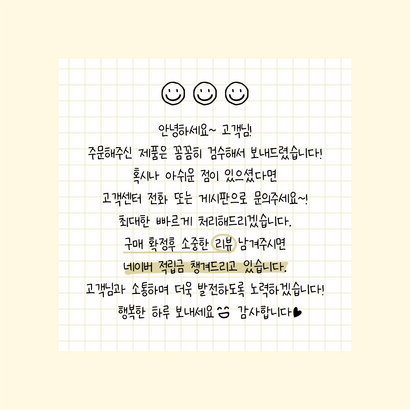 안녕하세요~ 고객님!
주문해주신 제품은 꼼꼼히 검수해서 보내드렸습니다!
혹시나 아쉬운 점이 있으셨다면
고객센터 전화 또는 게시판으로 문의주세요~!
최대한 빠르게 처리해드리겠습니다.
구매 확정후 소중한 리뷰 남겨주시면
네이버 적립금 챙겨드리고 있습니다.
고객님과 소통하며 더욱 발전하도록 노력하겠습니다!
행복한 하루 보내세요 감사합니다♥